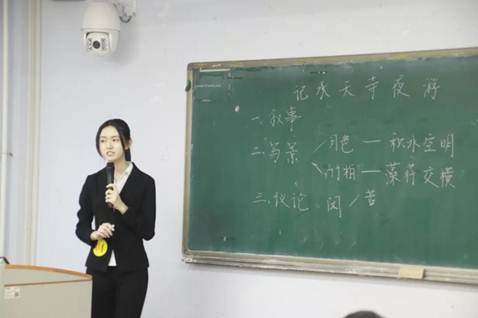 记承天寺夜游
一、叙事
二、写景 月色 — 积水空明
竹柏 — 藻荇交横
三、议论 闲 / 苦